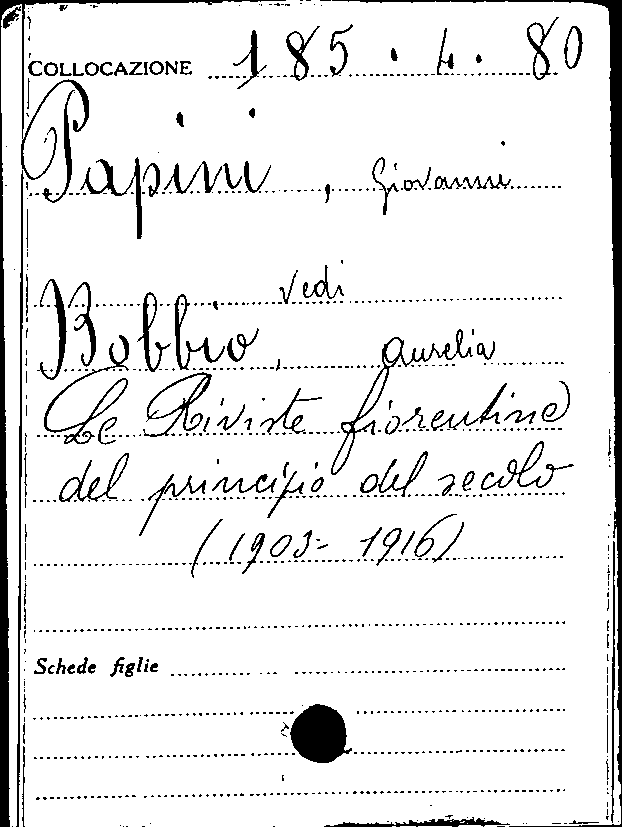 COLLOCAZIONE 185.4.80
Papini, Giovanni
Vedi
Bobbio, Aurelia
Le Riviste fiorentine
del principio del secolo
(1903-1916)
Schede figlie